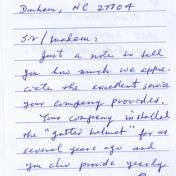 Durham, NC 27704
Sir/Madam:
Just a note to tell
you how much we appre-
ciate the excellent service
your company provides.
Your company installed
the "gutter helmet" for us
several years ago and
you also provide yearly